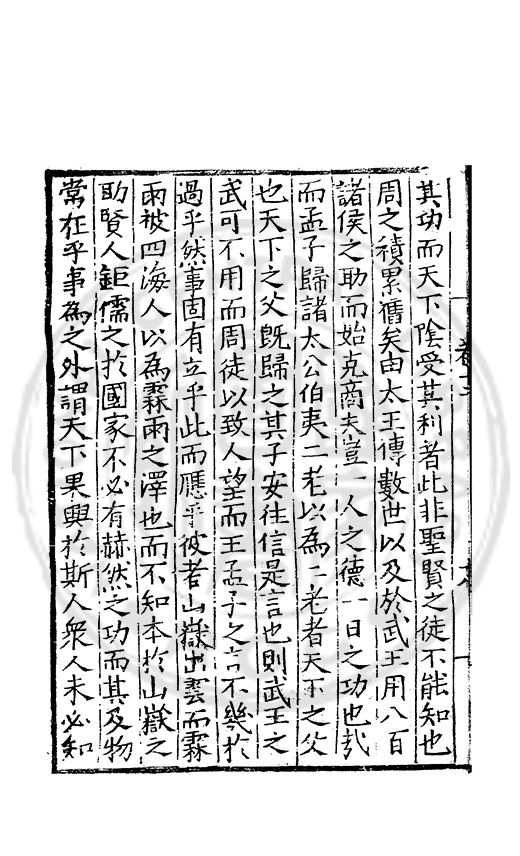 其功而天下陰受其利者此非聖賢之徒不能知也
周之積累舊矣由太王傳數世以及於武王用八百
諸侯之助而始克商夫豈一人之德一日之功也㢤
而孟子歸諸太公伯夷二老以為二老者天下之父
也天下之父旣歸之其子安往信是言也則武王之
武可不用而周徒以致人望而王孟子之言不幾於
過乎然事固有立乎此而應乎彼者山嶽出雲而霖
雨被四海人以為霖雨之澤也而不知本於山嶽之
助賢人鉅儒之於國家不必有赫然之功而其及物
常在乎事為之外謂天下果興於斯人衆人未必知